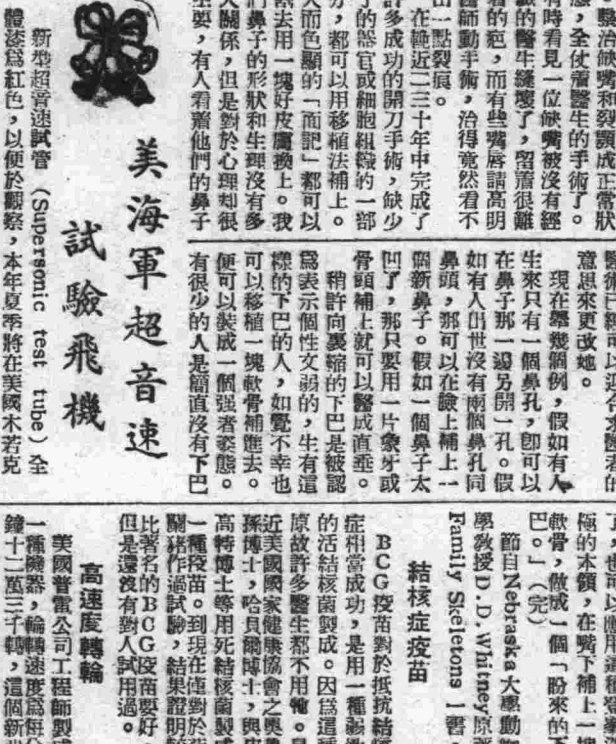 醫治缺嘴和裂顎成正常狀
態，全仗着醫生的手術了。
有時看見一位缺嘴被沒有經
驗的醫生縫壞了，留着很難
看的疤，而有些嘴唇請高明
醫師動手術，治得竟然看不
出一點裂痕。
在輓近二三十年中完成了
許多成功的開刀手術，缺少
了的器官或細胞組織的一部
分，都可以用移植法補上。
人而色顯的「面記」都可以
割去用一塊好皮膚換上。我
們鼻子的形狀和生理沒有多
大關係，但是對於心理却很
重要，有人看着他們的鼻子
意思來更改她。
現在舉幾個例，假如有人
生來只有一個鼻孔，卽可以
在鼻子那一邊另開一孔。假
如有人出世沒有兩個鼻孔同
鼻頭，那可以在臉上補上一
個新鼻子。假如一個鼻子太
凹了，那只要用一片象牙或
骨頭補上就可以醫成直垂。
稍許向裏縮的下巴是被認
爲表示個性文弱的，生有這
樣的下巴的人，如覺不幸也
可以移植一塊軟骨補進去。
便可以裝成一個强者姿態。
有很少的人是簡直沒有下巴
，也可以應用這種
極的本領，在嘴下補上一塊
軟骨，做成一個「盼來的下
巴。」（完）
節自Nebraska大學動
學敎授D.D.Whitney原著
Family Skeletons 1書
結核症疫苗
BCG疫苗對於抵抗結
症相當成功，是用一種弱
的活結核菌製成。因爲這
原故許多醫生都不用牠。
近美國國家健康協會之奧
孫博士，哈貝爾博士，與
高特博士等用死結核菌製
一種疫苗。到現在僅對於
關豬作過試驗，結果證明
比著名的BCG疫苗要好
但是還沒有對人試用過。
高速度轉輪
美國普電公司工程師製
一種機器，輪轉速度爲每
鐘十二萬三千轉，這個新
美海軍超音速
試驗飛機
新型超音速試管（Supersonic test tube）全
體漆爲紅色，以便於觀察，本年夏季將在美國木若克